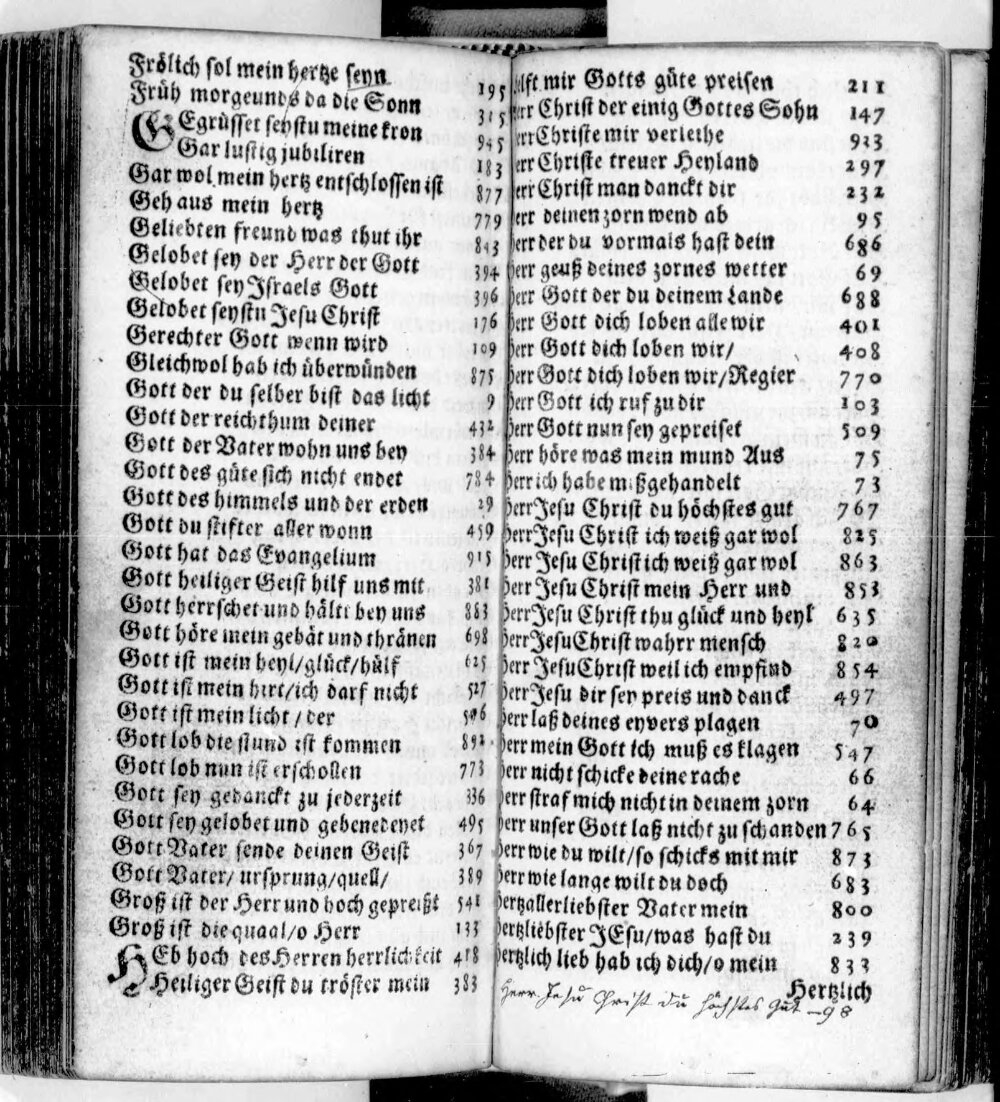 Frölich sol mein hertze seyn 195
Früh morgeunds da die Sonn 315
GEgrüsset seystu meine kron 945
Gar lustig jubiliren 183
Gar wol mein hertz entschlossen ist 877
Geh aus mein hertz 779
Geliebten freund was thut ihr 843
Gelobet sey der Herr der Gott 394
Gelobet sey Israels Gott 396
Gelobet seystu Jesu Christ 176
Gerechter Gott wenn wird 109
Gleichwol hab ich überwünden 875
Gott der du selber bist das licht 9
Gott der reichthum deiner 432
Gott der Vater wohn uns bey 384
Gott des güte sich nicht endet 784
Gott des himmels und der erden 29
Gott du stifter aller wonn 459
Gott hat das Evangelium 915
Gott heiliger Geist hilf uns mit 381
Gott herrschet und hält bey uns 883
Gott höre mein gebät und thränen 698
Gott ist mein heyl/glück/hülf 625
Gott ist mein hirt/ich darf nicht 527
Gott ist mein licht/der 506
Gott lob die stund ist kommen 892
Gott lob nun ist erschollen 773
Gott sey gedanckt zu jederzeit 336
Gott sey gelobet und gebenedeyet 495
Gott Vater sende deinen Geist 367
Gott Vater/ursprung/quell/ 389
Groß ist der Herr und hoch gepreißt 541
Groß ist die quaal/o Herr 133
HEb hoch des Herren herrlichkeit 418
Heiliger Geist du tröster mein 383
hilft mir Gotts güte preisen 211
Herr Christ der einig Gottes Sohn 147
Herr Christe mir verleihe 933
Herr Christe treuer Heyland 297
Herr Christ man danckt dir 232
Herr deinen zorn wend ab 95
Herr der du vormals hast dein 686
Herr geuß deines zornes wetter 69
Herr Gott der du deinem Lande 688
Herr Gott dich loben alle wir 401
Herr Gott dich loben wir/ 408
Herr Gott dich loben wir/Regier 770
Herr Gott ich ruf zu dir 103
Herr Gott nun sey gepreiset 509
Herr höre was mein mund Aus 75
Herr ich habe mißgehandelt 73
Herr Jesu Christ du höchstes gut 767
Herr Jesu Christ ich weiß gar wol 825
Herr Jesu Christ ich weiß gar wol 863
Herr Jesu Christ mein Herr und 853
Herr Jesu Christ thu glück und heyl 635
Herr Jesu Christ wahrr mensch 820
Herr Jesu Christ weil ich empfind 854
Herr Jesu dir sey preis und danck 497
Herr laß deines eyvers plagen 70
Herr mein Gott ich muß es klagen 547
Herr nicht schicke deine rache 66
Herr straf mich nicht in deinem zorn 64
Herr unser Gott laß nicht zu schanden 765
Herr wie du wilt/so schicks mit mir 873
Herr wie lange wilt du doch 683
Hertzallerliebster Vater mein 800
Hertzliebster JEsu/was hast du 239
Hertzlich lieb hab ich dich/o mein 833
Hertzlich
Herr Jesu Christ du höchstes Gut — 98